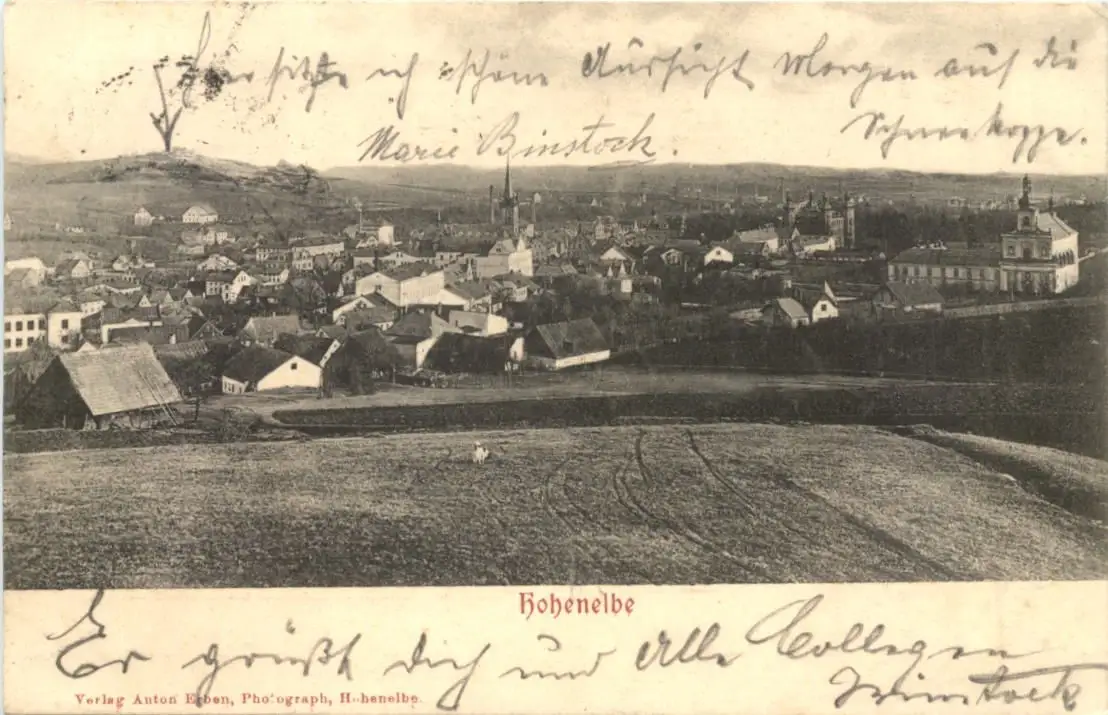 hier sitze ich schöne Aussicht Morgen auf die
Schneekoppe.
Marie Binstock.
Hohenelbe
Er grüßt dich und alle Collegen
Binstock
Verlag Anton Erben, Photograph, Hohenelbe.